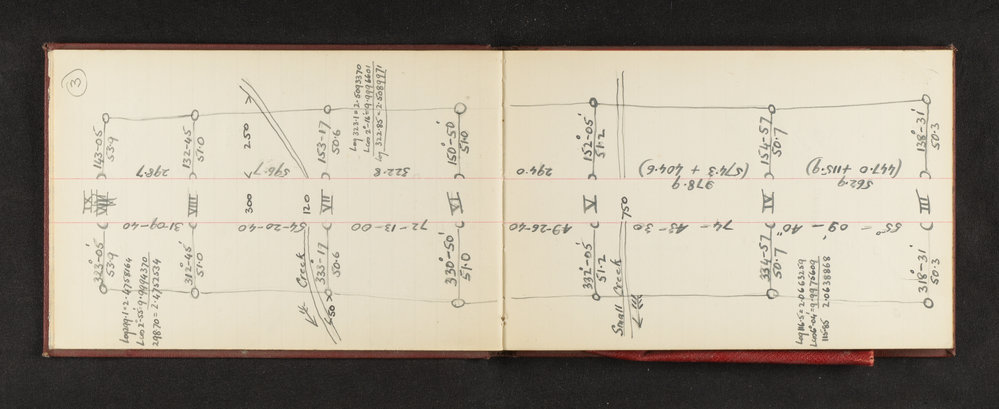 3
163-05
53.9
298.7
IX
31-09-40
333-05'
53.9
Log 299.1 = 2.4758164
L cos 2°-55' = 9.9994370
298.70 = 2.4752534
132-45
51.0
VIII
312-45'
51.0
250
300
596.7
54-20-40
120
Creek
50
153-17
50.6
VII
333-17
50.6
322.8
72-13-00
Log 323.1 = 2.5093370
L cos 2°-16' = 9.9996601
Log 322.85 = 2.5089971
150°-50'
51.0
VI
330°-50'
51.0
294.0
49-26-40
152°-05'
51.2
V
332-05'
51.2
750
Small Creek
(574.3 + 404.6)
978.9
74-43-30
154-57
50.7
IV
334-57
50.7
Log 116.5 = 2.0663259
L cos 6°-04' = 9.9975609
115.85 2.0638868
(447.0 + 115.9)
562.9
55°-09'-40"
138-31'
50.3
III
318-31'
50.3